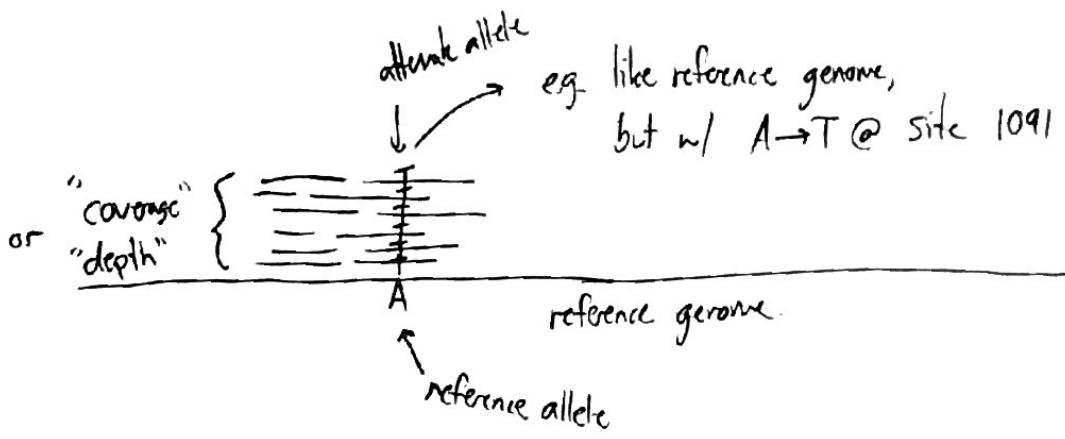 alternate allele
e.g. like reference genome,
but w/ A→T @ site 1091
"coverage"
or
"depth"
T
A
reference genome.
reference allele